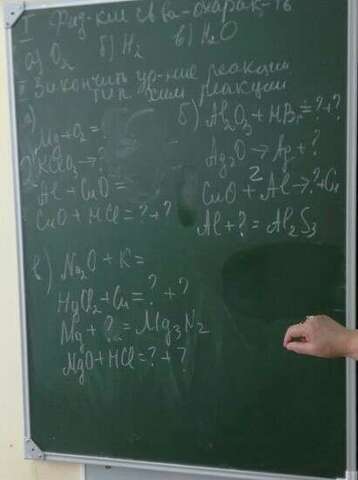 I Физ-кие св-ва-охарак-ть
а) O₂ б) H₂ в) H₂O
II Закончить ур-ние реакции
тип хим реакции
а)
Mg + O₂ = ?
KClO₃ → ?
Al + CuO =
CuO + HCl = ? + ?
б) Al₂O₃ + HBr = ? + ?
Ag₂O → Ag + ?
CuO + Al → ? + Cu
Al + ? = Al₂S₃
в) Na₂O + K =
HgCl₂ + Cu = ? + ?
Mg + ? = Mg₃N₂
MgO + HCl = ? + ?